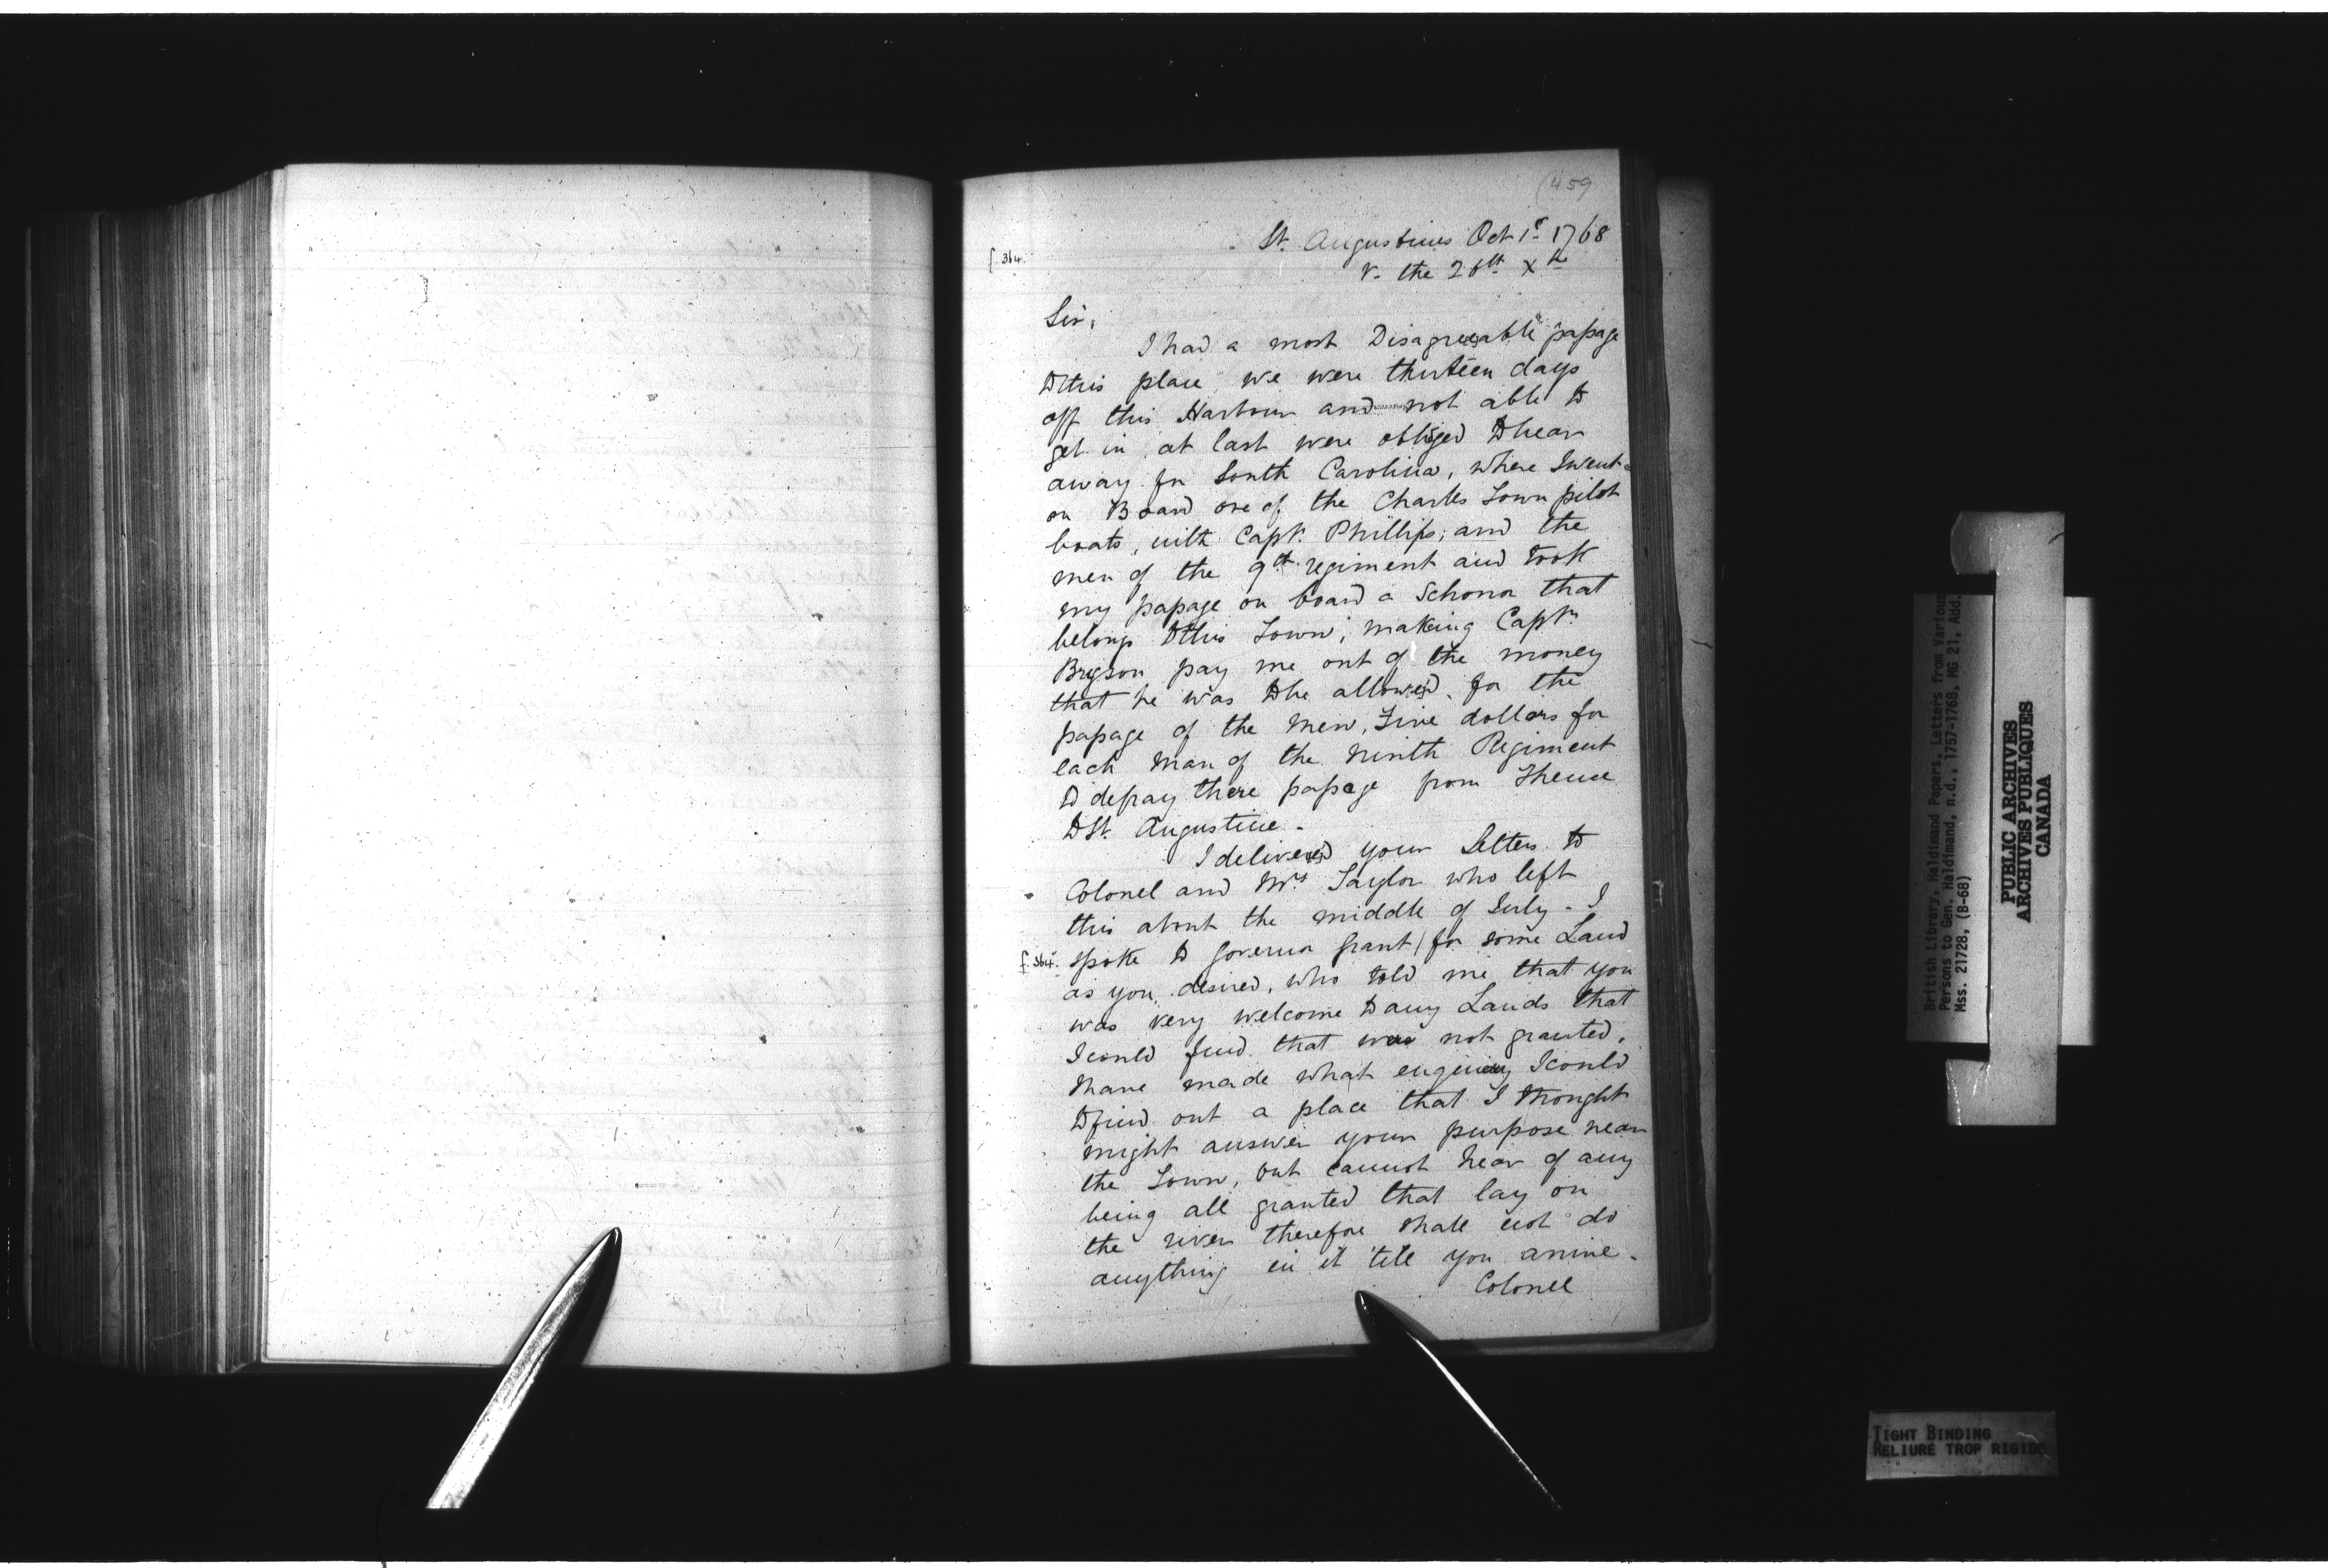 (459
St. Augustines Oct 1st 1768
f. 364.
r. the 26th Xbr
Sir,
I had a most Disagreeable passage
to this place, we were thirteen days
off this Harbour and not able to
get in, at last were obliged to bear
away for South Carolina, where I went
on Board one of the Charles Town pilot
boats, with Capt. Phillips; and the
men of the 9th regiment and took
my passage on board a Schonor that
belongs to this Town; making Captn
Bryson pay me out of the money
that he was to be allowed, for the
passage of the Men, Five dollars for
each Man of the Ninth Regiment
to defray there passage from Thence
to St. Augustine.
I delivered your Letters to
Colonel and Mrs Taylor who left
this about the middle of July - I
f. 364. spoke to Governor Grant / for some Land
as you desired, who told me that you
was very welcome to any Lands that
I could find that was not granted,
have made what I could
to find out a place that I thought
might answer your purpose near
the Town, but cannot hear of any
being all granted that lay on
the river therefore shall not do
anything in it 'till you arrive.
Colonel
British Library, Haldimand Papers, Letters from Various
Persons to Gen. Haldimand, n.d., 1757-1768, MG 21, Add.
Mss. 21728, (B-68)
PUBLIC ARCHIVES
ARCHIVES PUBLIQUES
CANADA
TIGHT BINDING
RELIURE TROP RIGIDE